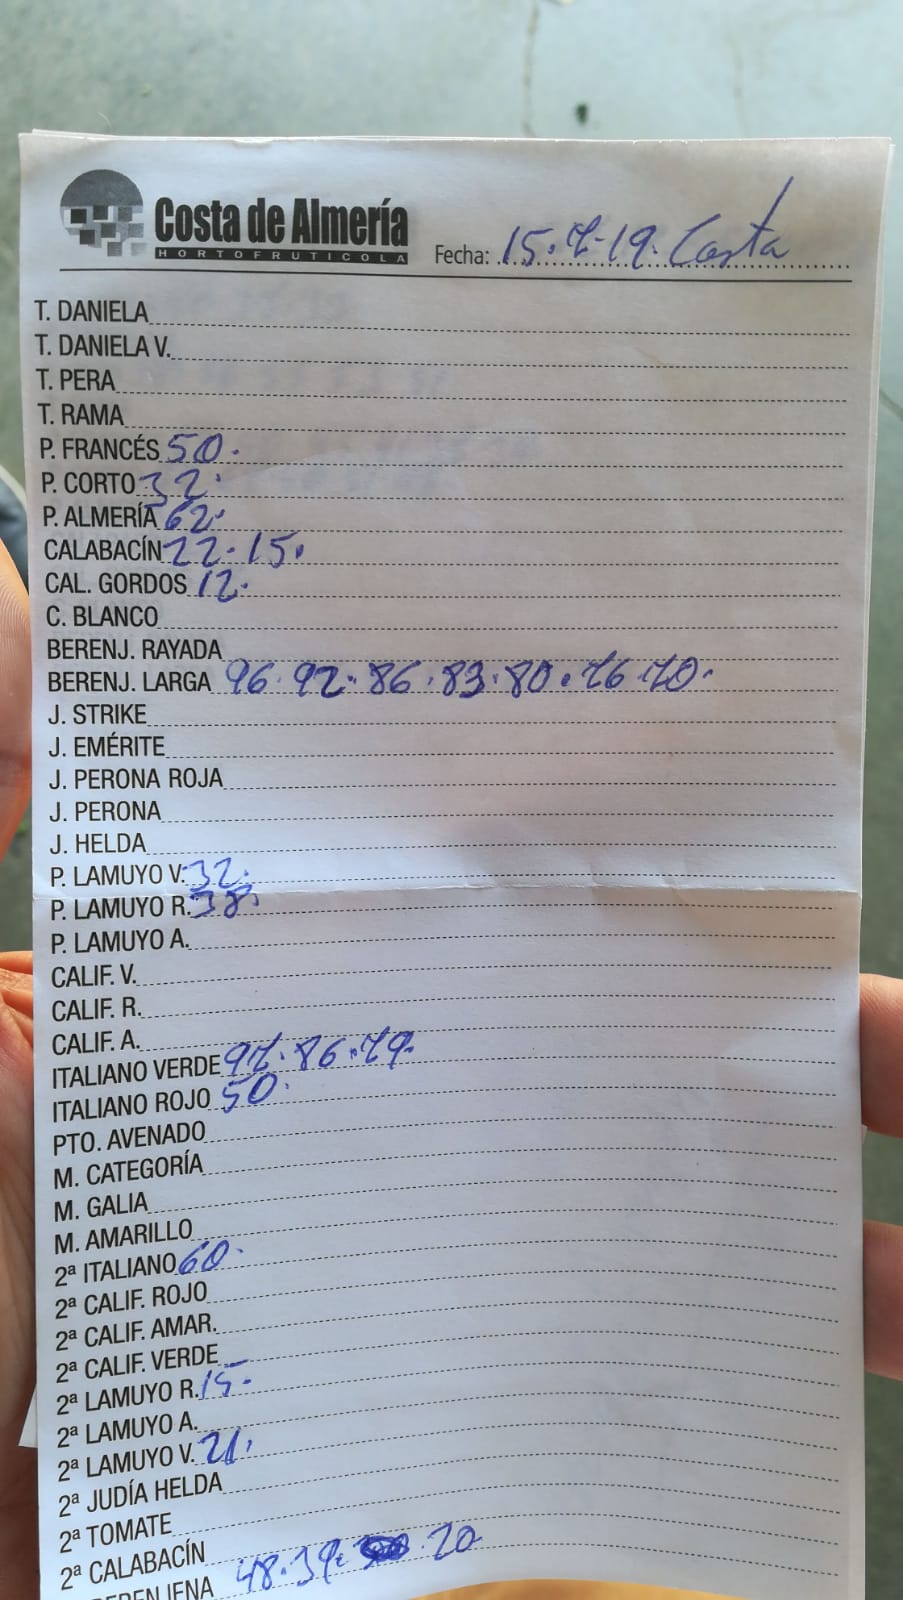 Costa de Almería
HORTOFRUTICOLA
Fecha: 15.7-19. Costa
T. DANIELA
T. DANIELA V.
T. PERA
T. RAMA
P. FRANCÉS 50.
P. CORTO 32.
P. ALMERÍA 62.
CALABACÍN 22. 15.
CAL. GORDOS 12.
C. BLANCO
BERENJ. RAYADA
BERENJ. LARGA 96. 92. 86. 83. 80. 76. 70.
J. STRIKE
J. EMÉRITE
J. PERONA ROJA
J. PERONA
J. HELDA
P. LAMUYO V. 32.
P. LAMUYO R. 38.
P. LAMUYO A.
CALIF. V.
CALIF. R.
CALIF. A.
ITALIANO VERDE 97. 86. 79.
ITALIANO ROJO 50.
PTO. AVENADO
M. CATEGORÍA
M. GALIA
M. AMARILLO
2ª ITALIANO 60.
2ª CALIF. ROJO
2ª CALIF. AMAR.
2ª CALIF. VERDE
2ª LAMUYO R. 15.
2ª LAMUYO A.
2ª LAMUYO V. 21.
2ª JUDÍA HELDA
2ª TOMATE
2ª CALABACÍN
BERENJENA 48. 39. 20